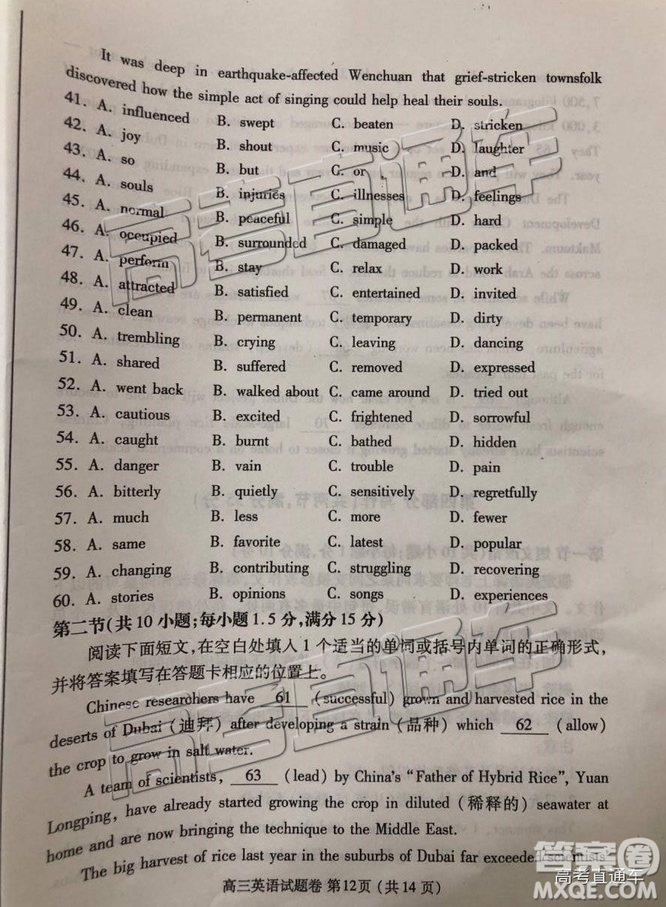 It was deep in earthquake-affected Wenchuan that grief-stricken townsfolk
discovered how the simple act of singing could help heal their souls.
41. A. influenced B. swept C. beaten D. stricken
42. A. joy B. shout C. music D. laughter
43. A. so B. but C. or D. and
44. A. souls B. injuries C. illnesses D. feelings
45. A. normal B. peaceful C. simple D. hard
46. A. occupied B. surrounded C. damaged D. packed
47. A. perform B. stay C. relax D. work
48. A. attracted B. satisfied C. entertained D. invited
49. A. clean B. permanent C. temporary D. dirty
50. A. trembling B. crying C. leaving D. dancing
51. A. shared B. suffered C. removed D. expressed
52. A. went back B. walked about C. came around D. tried out
53. A. cautious B. excited C. frightened D. sorrowful
54. A. caught B. burnt C. bathed D. hidden
55. A. danger B. vain C. trouble D. pain
56. A. bitterly B. quietly C. sensitively D. regretfully
57. A. much B. less C. more D. fewer
58. A. same B. favorite C. latest D. popular
59. A. changing B. contributing C. struggling D. recovering
60. A. stories B. opinions C. songs D. experiences
第二节(共10小题;每小题1.5分,满分15分)
阅读下面短文,在空白处填入1个适当的单词或括号内单词的正确形式,
并将答案填写在答题卡相应的位置上。
Chinese researchers have 61 (successful) grown and harvested rice in the
deserts of Dubai (迪拜) after developing a strain (品种) which 62 (allow)
the crop to grow in salt water.
A team of scientists, 63 (lead) by China's "Father of Hybrid Rice", Yuan
Longping, have already started growing the crop in diluted (稀释的) seawater at
home and are now bringing the technique to the Middle East.
The big harvest of rice last year in the suburbs of Dubai far exceeded scientists
高三英语试题卷 第12页 (共14页)
高考直通车
答案圈
高考直通车
MXQE.COM